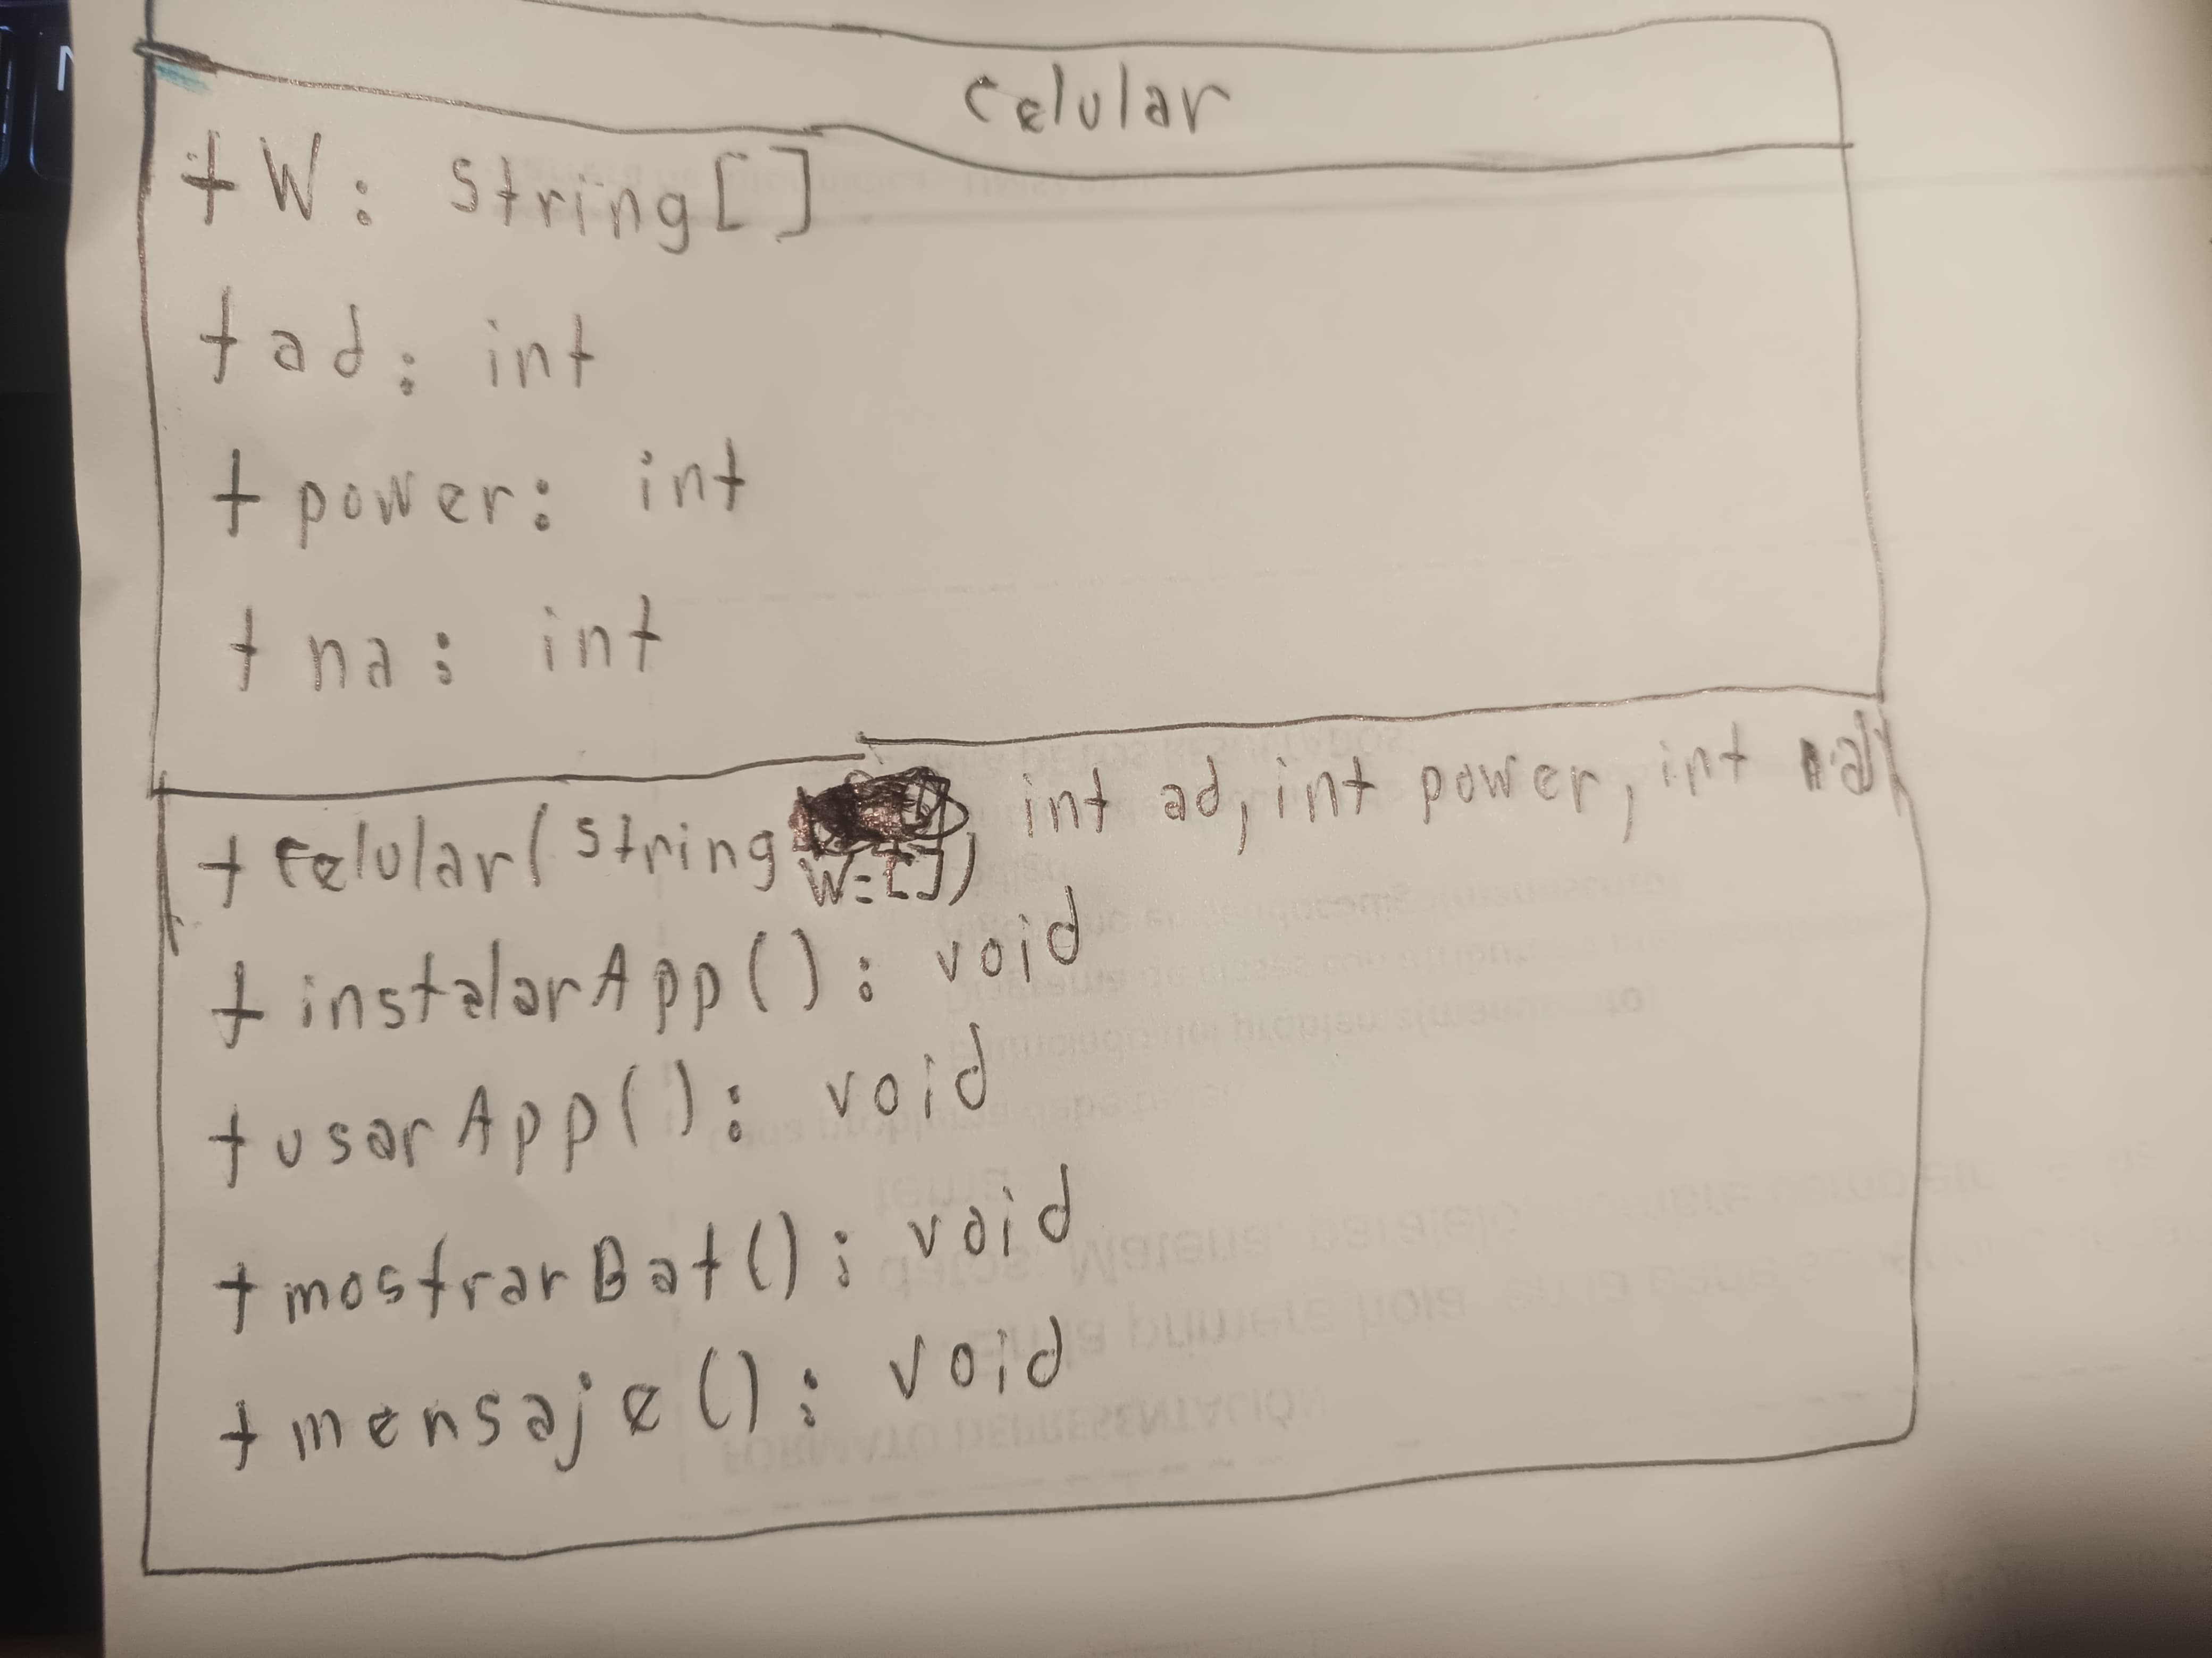 celular
+ W: String[]
+ ad: int
+ power: int
+ na: int
+ celular(String W=[]), int ad, int power, int na)
+ instalarApp(): void
+ usarApp(): void
+ mostrarBat(): void
+ mensaje(): void